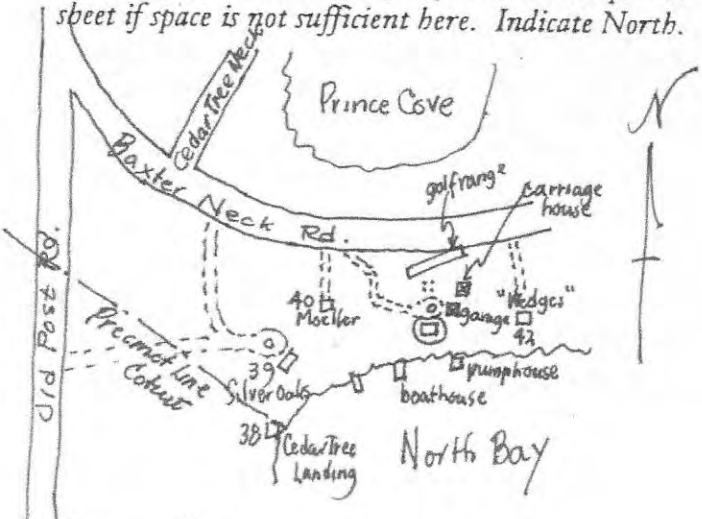 sheet if space is not sufficient here. Indicate North.
Prince Cove
N
Cedar Tree Neck
Baxter Neck Rd.
golf range
carriage
house
Old Post Rd.
40
Moeller
garage
"Hedges"
42
Precinct line
Cotuit
39
Silver Oaks
boathouse
pumphouse
38
Cedar Tree
Landing
North Bay